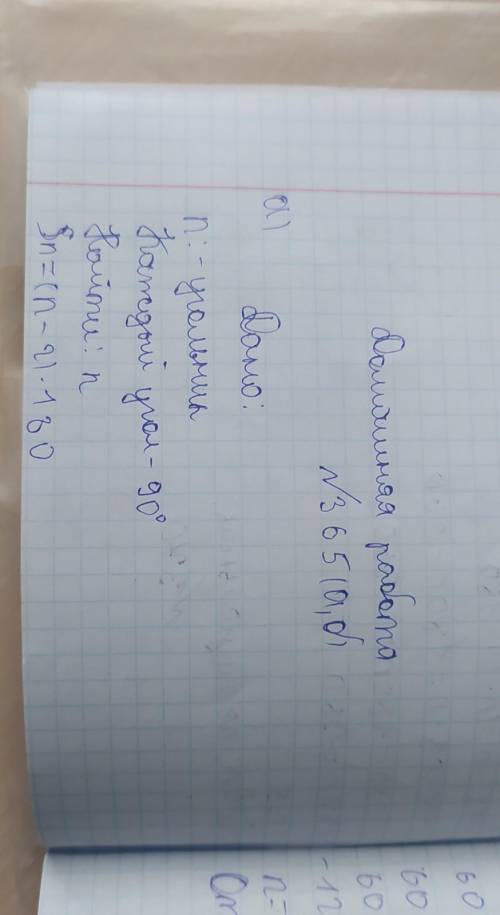 Домашняя работа
№365(а,б)
а) Дано:
n:-угольник
Каждый угол - 90°
Найти: n
Sn=(n-2).180
60
60
60
-12
n=
От